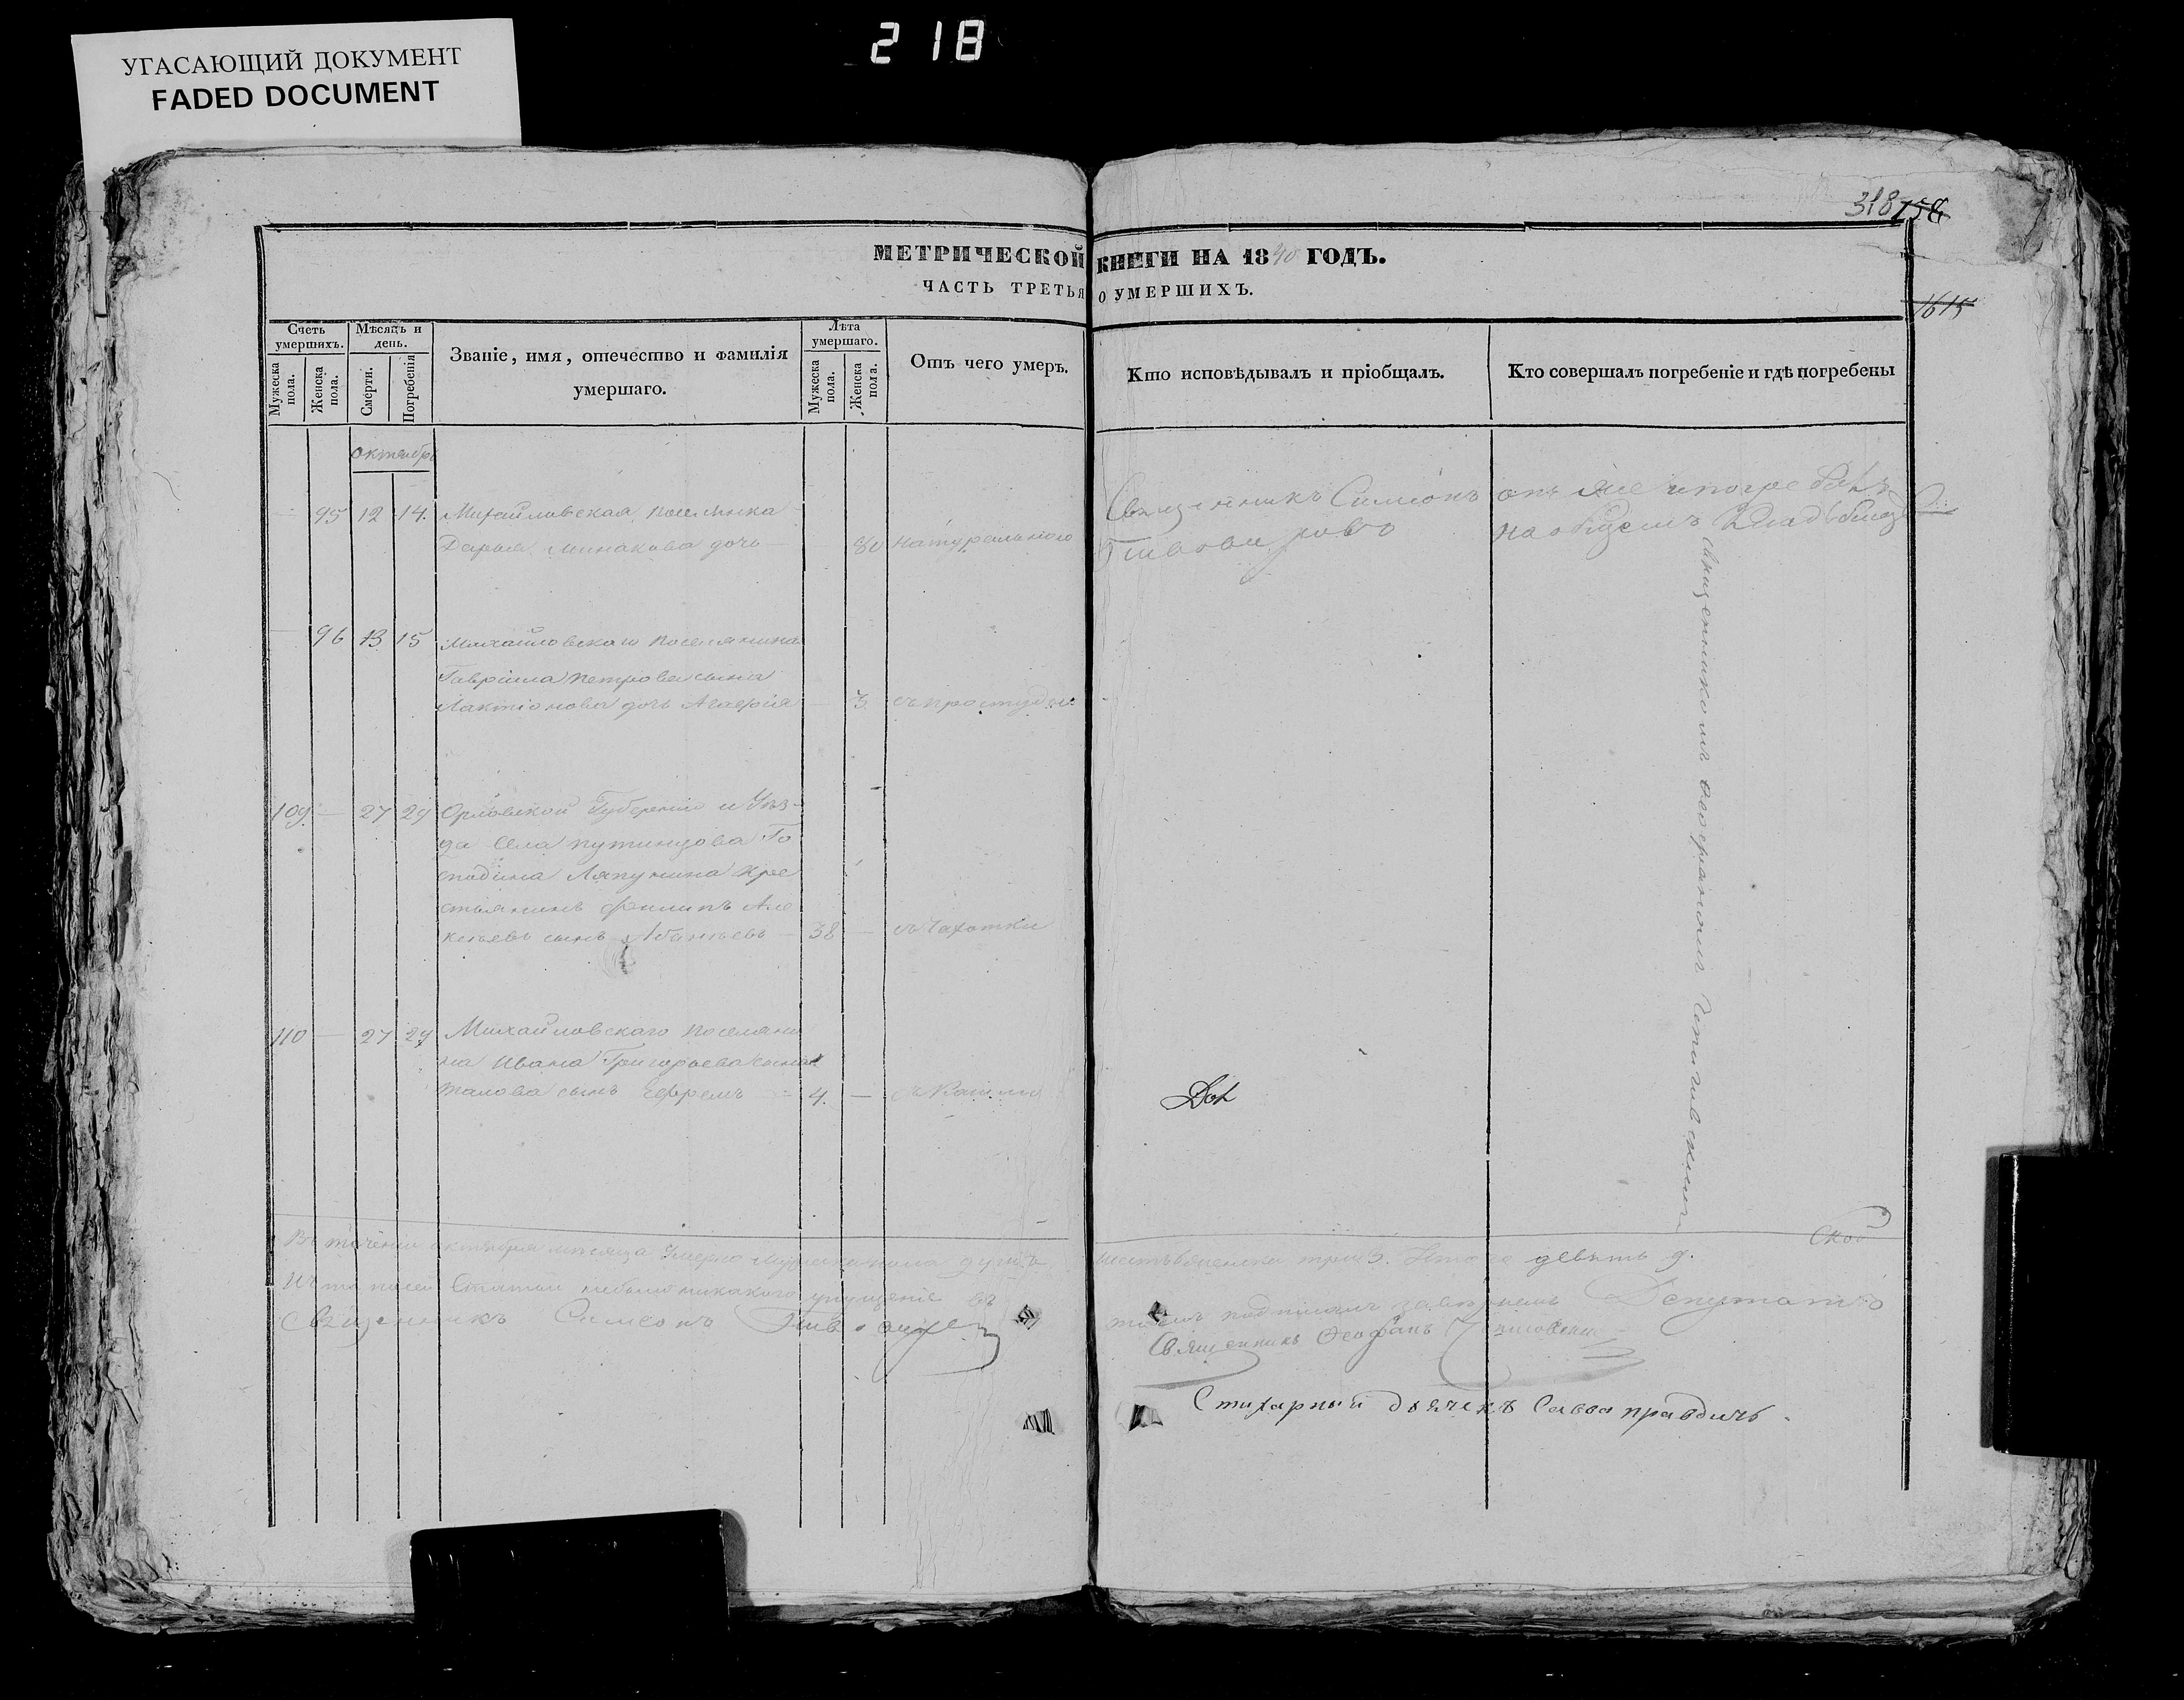 УГАСАЮЩИЙ ДОКУМЕНТ
FADED DOCUMENT
218
318 158
1615
МЕТРИЧЕСКОЙ КНИГИ НА 1840 ГОДЪ.
ЧАСТЬ ТРЕТЬЯ О УМЕРШИХЪ.
Счетъ умершихъ.
Мужеска пола.
Женска пола.
Мѣсяцъ и день.
Смерти.
Погребенія
Званіе, имя, отечество и фамилія умершаго.
Лѣта умершаго.
Мужеска пола.
Женска пола.
Отъ чего умеръ.
Кто исповѣдывалъ и пріобщалъ.
Кто совершалъ погребеніе и гдѣ погребены
октябрь
95 12 14. Михайловская поселянка
Дарья Минакова дочь — 80 натурального
Священникъ Симеонъ
онъ же и погребалъ
на общемъ кладбищѣ
96 13 15 Михайловскаго поселянина
Гавріила Петрова сына
Лактіонова дочь Агафія — 3 съ простуды
109 — 27 29 Орловской Губерніи и Уѣз-
да села Путимцова Го
сподина Ляпунина крес
стьянинъ Филипъ Але
ксѣевъ сынъ — 38 — съ Чахотки
110 — 27 29 Михайловскаго поселяни
на Ивана Григорьева сына
талова сынъ Ефремъ — 4. — съ Кашлю
Священникомъ Феофаномъ
Въ теченіи октября мѣсяца умерло мужеска пола душъ шесть женска три 3. Итого девять 9.
Что по сей статьи небыло никакого упущенія въ томъ подписомъ завѣряемъ Депутатъ
Священникъ Симеонъ
Священникъ Феофанъ
Стихарный дьячекъ Савва Правдичъ.